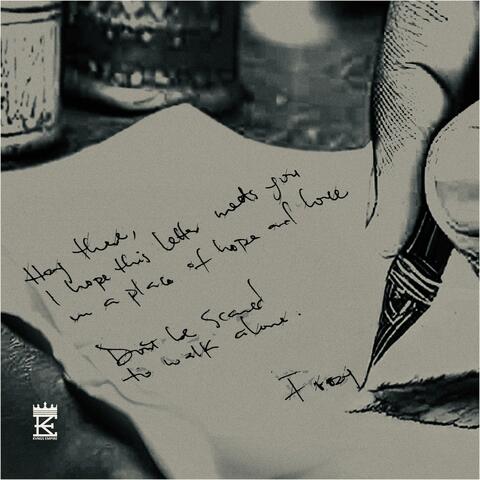 Hey there,
I hope this letter meets you
in a place of hope and love
Don't be scared
to walk alone.
KVNGS EMPIRE